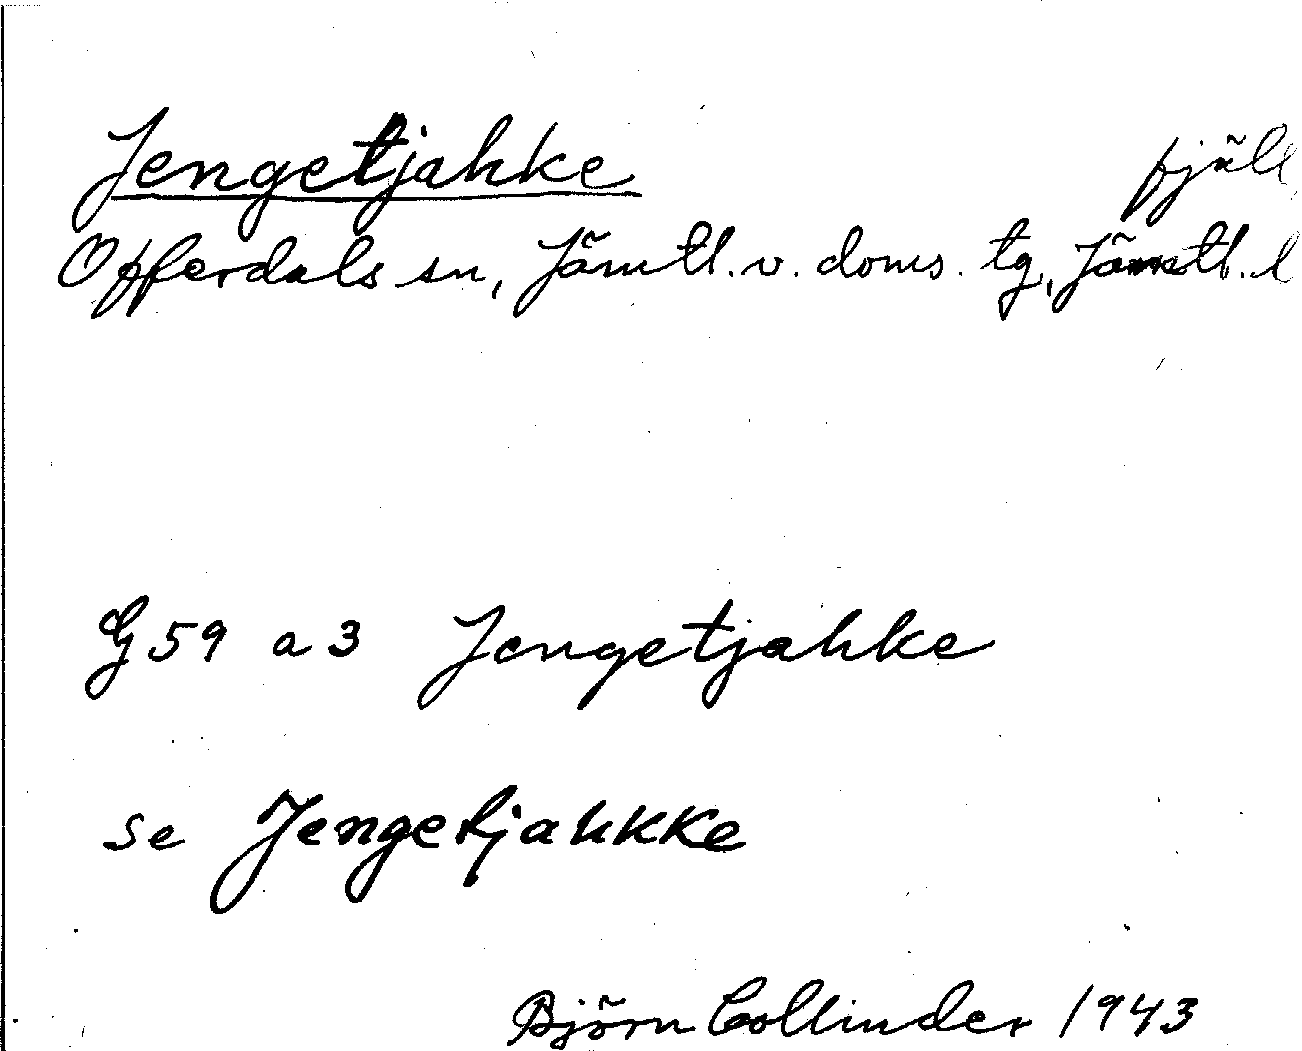 Jengetjahke fjäll,
Offerdals sn, Jämtl. v. doms. tg, Jämtl. l
G 59 a 3 Jengetjahke
se Jengetjahkke
Björn Collinder 1943